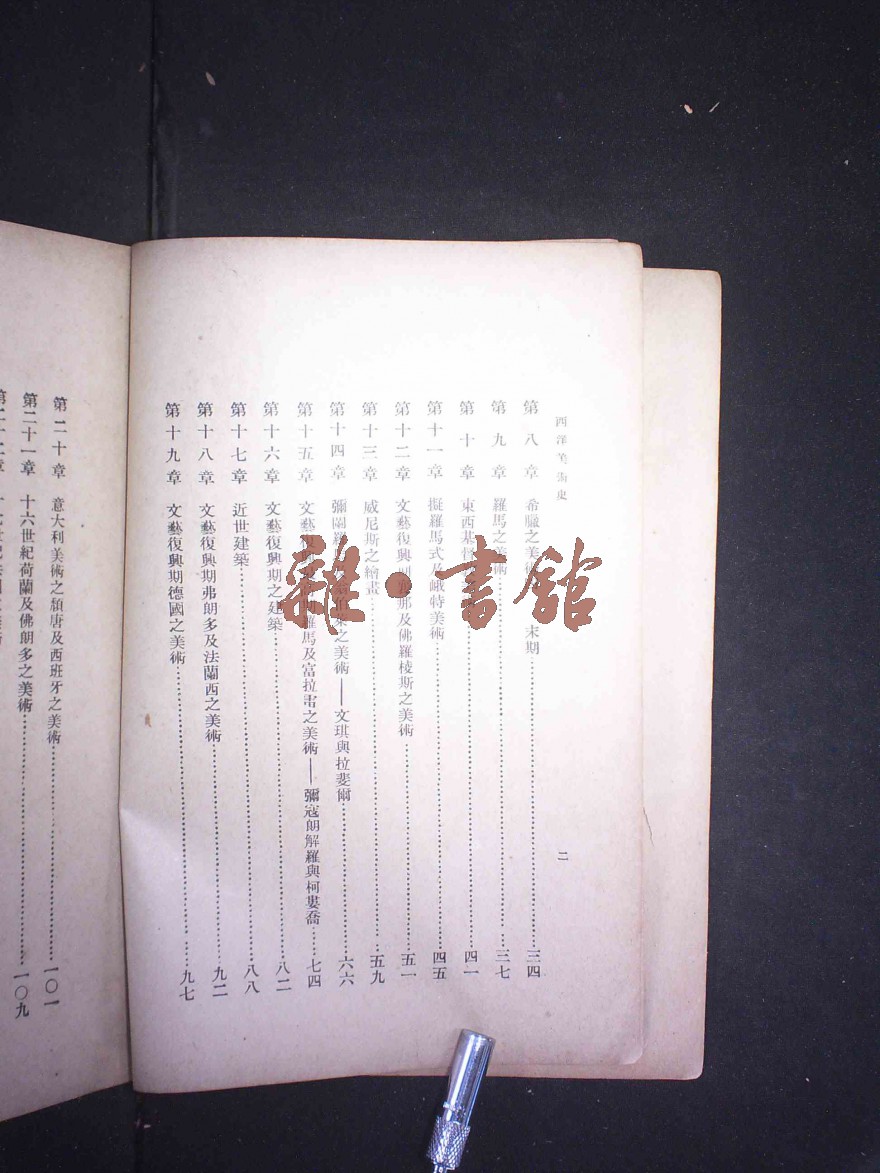 西洋美術史
第八章 希臘之美術 末期……三四
第九章 羅馬之美術……三七
第十章 東西基督……四一
第十一章 擬羅馬式及峨特美術……四五
第十二章 文藝復興期 那及佛羅棱斯之美術……五一
第十三章 威尼斯之繪畫……五九
第十四章 彌蘭 伯萊之美術——文琪與拉斐爾……六六
第十五章 文藝復興 期羅馬及富拉雷之美術——彌寇朗解羅與柯婁喬……七四
第十六章 文藝復興期之建築……八二
第十七章 近世建築……八八
第十八章 文藝復興期弗朗多及法蘭西之美術……九二
第十九章 文藝復興期德國之美術……九七
二
第二十章 意大利美術之頹唐及西班牙之美術……一〇一
第二十一章 十六世紀荷蘭及佛朗多之美術……一〇九
雜·書館